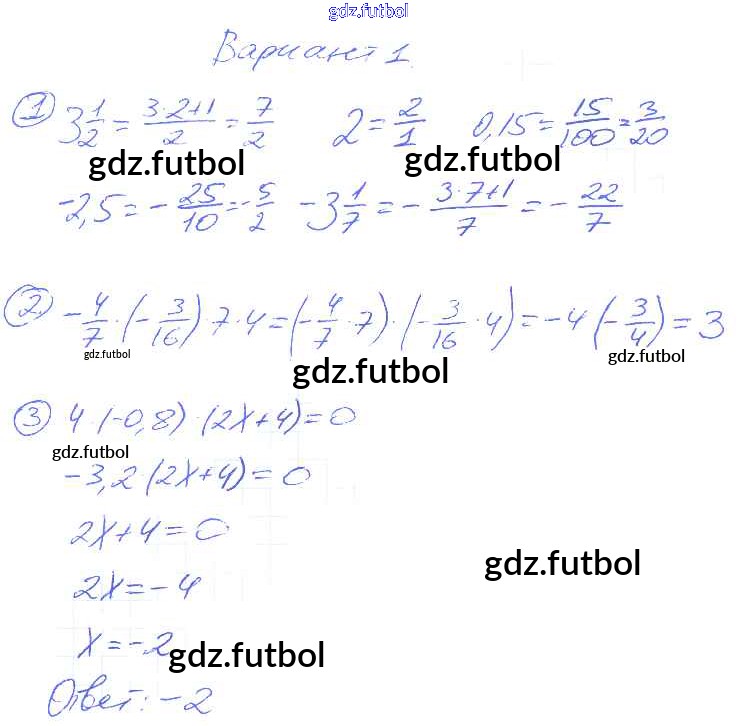 gdz.futbol
Вариант 1.
① 3 1/2 = (3·2+1)/2 = 7/2 2 = 2/1 0,15 = 15/100 = 3/20
gdz.futbol gdz.futbol
-2,5 = -25/10 = -5/2 -3 1/7 = -(3·7+1)/7 = -22/7
② -4/7 · (-3/16) · 7 · 4 = (-4/7 · 7) · (-3/16 · 4) = -4 (-3/4) = 3
gdz.futbol gdz.futbol gdz.futbol
③ 4 · (-0,8) · (2x+4) = 0
gdz.futbol
-3,2 (2x+4) = 0
2x+4 = 0
gdz.futbol
2x = -4
x = -2
gdz.futbol
Ответ: -2